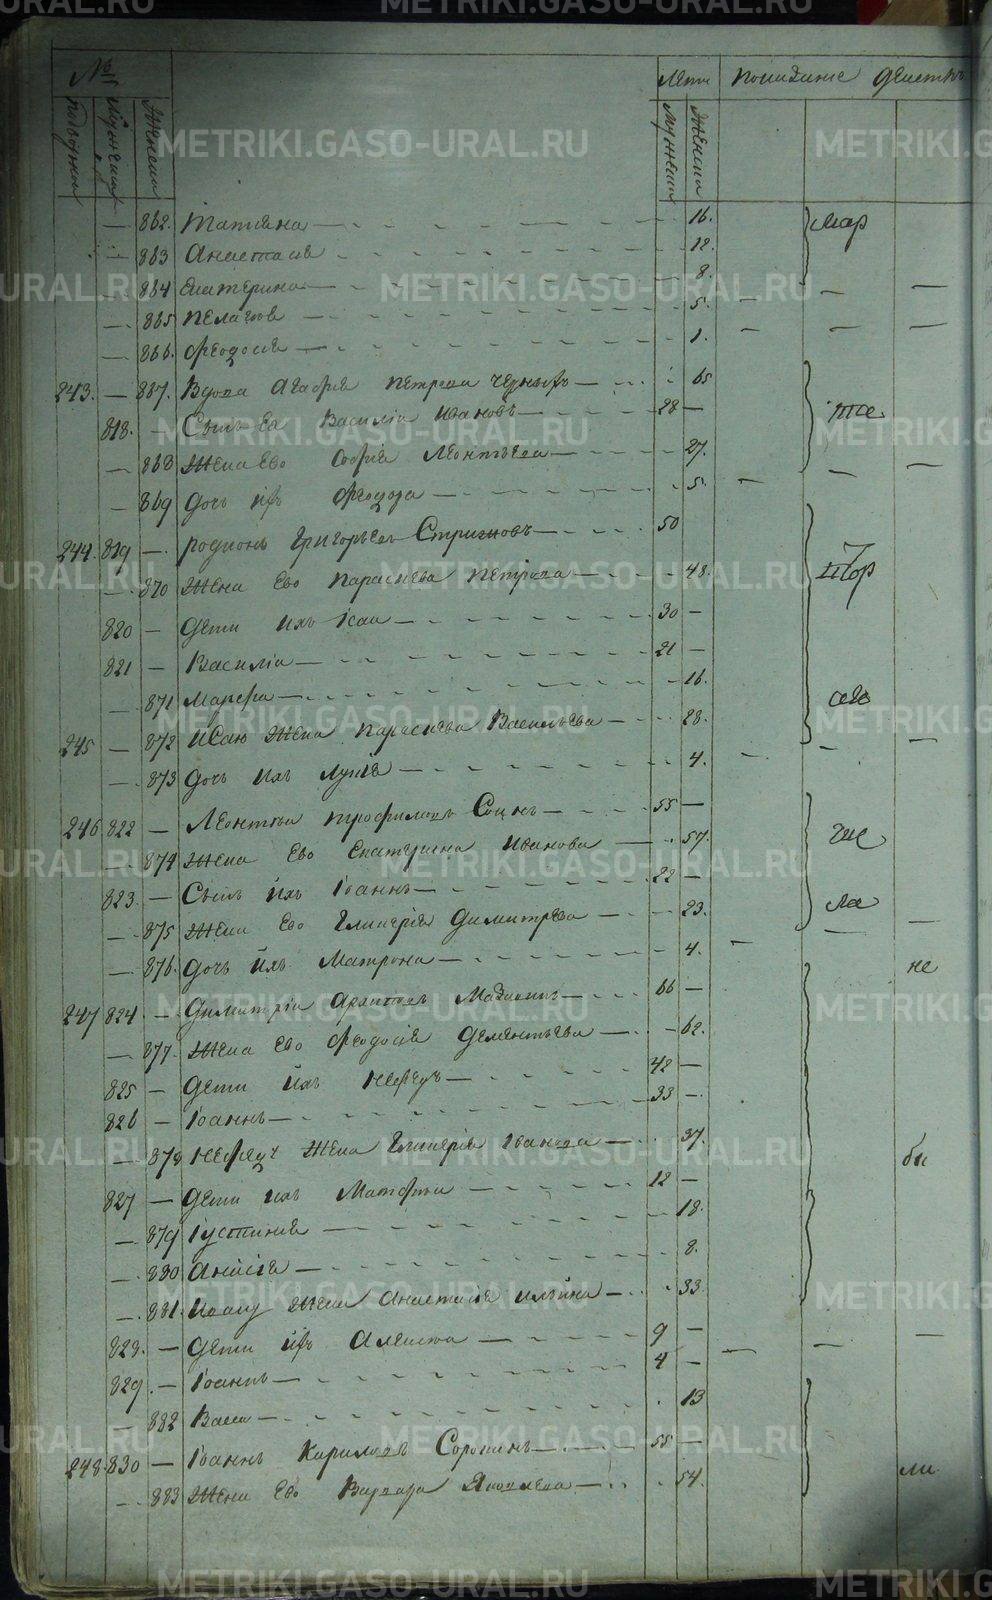 METRIKI.GASO-URAL.RU
№ Лети
подворно Мужеска Женска Мужеска Женска
— 862. Татіяна — 16.
— 863 Анастасія 12. мар
— 864 Екатерина — 8.
— 865 Пелагея — 5.
— 866. Феодосія — 1.
243. — 867. Вдова Агафия Петрова — 65
818. — Сынъ Ея Василіи Ивановъ — 28 — те
— 868 Жена Ево Софія Леонтьева — 27.
— 869 дочь ихъ Феодора — 5.
244. 819 — Родионъ Григорьевъ — 50
— 870 Жена Ево Параскева Петрова — 48.
820 — дети ихъ Исаи — 30 —
821 — Василіи — 21 —
— 871 Марфа — 16.
245 — 872 Исаю Жена Параскева Васильева — 28.
— 873 дочь ихъ — 4.
246 822 — Леонтіи Трофимовъ — 55 —
— 874 Жена Ево Екатерина Иванова — 57.
823. — Сынъ ихъ Іоаннъ — 22 —
— 875 Жена Ево Гликерія Димитрева — 23. ла
— 876. дочь ихъ Матрона — 4.
не
247 824. — Димитріи — 66 —
— 877. Жена Ево Феодосія Дементьева — 62.
825 — дети ихъ Нефедъ — 42 —
826 — Іоаннъ — 33 —
— 878 Нефеду Жена Гликерія Іванова — 37. бы
827 — дети ихъ Матфеи — 12 —
— 879 Іустинія — 18.
— 880 Анисія — 8.
— 881. Ивану Жена Анастасія Ильина — 33.
828. — дети ихъ — 9 —
829. — Іоаннъ — 4 —
— 882 Васса — 13
248. 830 — Іоаннъ Кириловъ Сорокинъ — 55 —
— 883 Жена Ево Варвара Яковлева — 54. ли